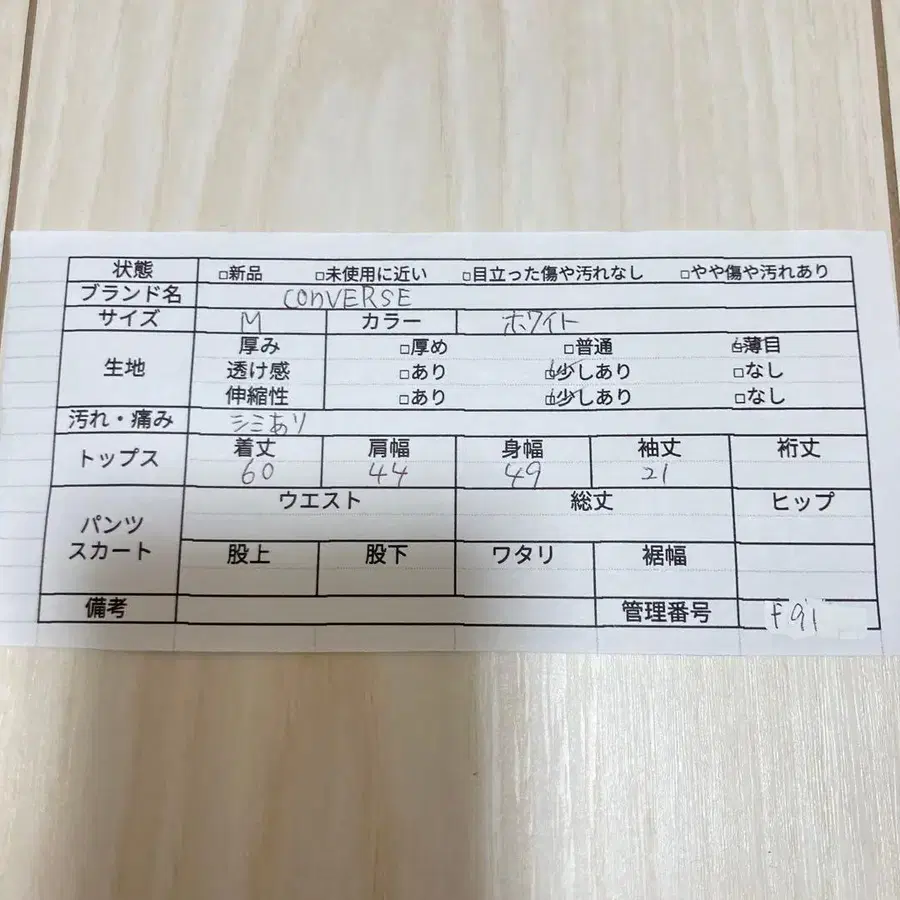 状態 □新品 □未使用に近い □目立った傷や汚れなし □やや傷や汚れあり
ブランド名 CONVERSE
サイズ M カラー ホワイト
生地 厚み □厚め □普通 ☑薄目
透け感 □あり ☑少しあり □なし
伸縮性 □あり ☑少しあり □なし
汚れ・痛み シミあり
トップス 着丈 肩幅 身幅 袖丈 裄丈
60 44 49 21
パンツ スカート ウエスト 総丈 ヒップ
股上 股下 ワタリ 裾幅
備考 管理番号 F91